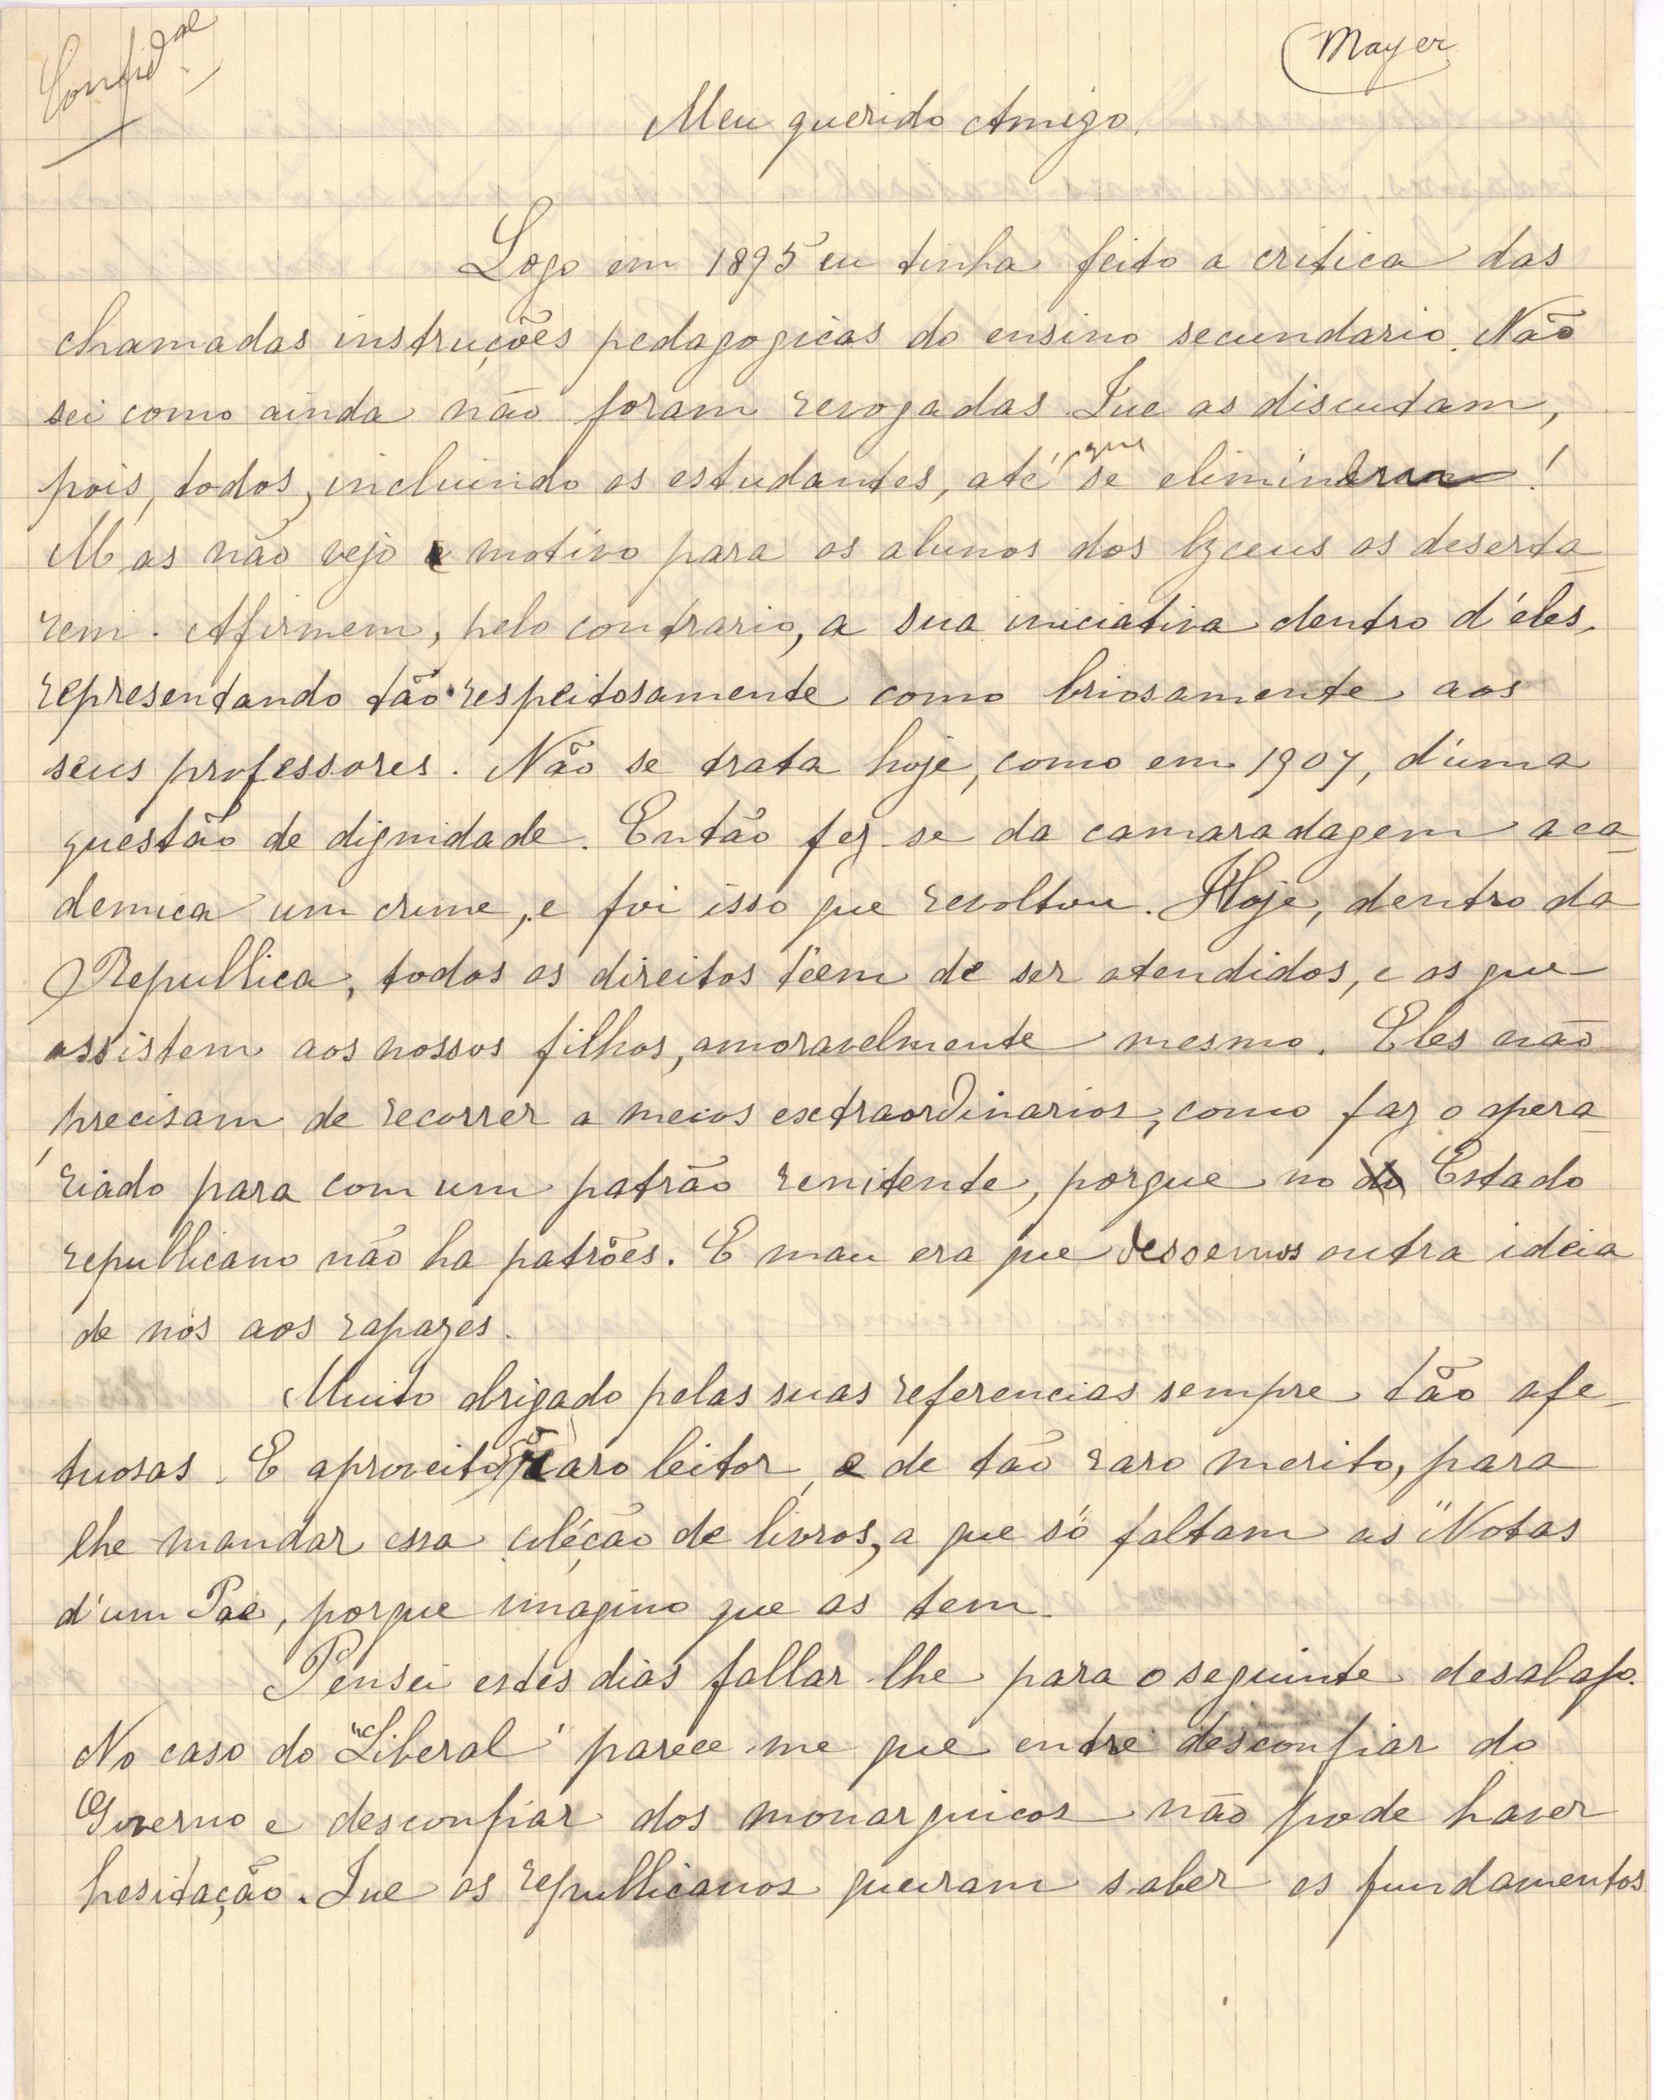 Confid.al
Mayer
Meu querido Amigo.
Logo em 1895 eu tinha feito a critica das
chamadas instruções pedagogicas do ensino secundario. Não
sei como ainda não foram revogadas. Que as discutam,
pois, todos, incluindo os estudantes, até que se eliminem!
Mas não vejo motivo para os alunos dos lyceus os deserta-
rem. Afirmem, pelo contrario, a sua iniciativa dentro d'êles,
representando tão respeitosamente como briosamente aos
seus professores. Não se trata hoje, como em 1907, d'uma
questão de dignidade. Então fez-se da camaradagem aca-
demica um crime, e foi isso que revoltou. Hoje, dentro da
Republica, todos os direitos têem de ser atendidos, e os que
assistem aos nossos filhos, amoravelmente mesmo. Eles não
precisam de recorrer a meios extraordinarios, como faz o opera-
riado para com um patrão renitente, porque no Estado
republicano não ha patrões. E mau era que dessemos outra ideia
de nós aos rapazes.
Muito obrigado pelas suas referencias sempre tão afe-
tuosas. E aproveito o caro leitor, e de tão raro merito, para
lhe mandar essa coléção de livros, a que só faltam as "Notas
d'um Pae, porque imagino que as tem.
Pensei estes dias fallar-lhe para o seguinte desabafo.
No caso do "Liberal" parece-me que entre desconfiar do
Governo e desconfiar dos monarquicos não pode haver
hesitação. Que os republicanos queiram saber os fundamentos